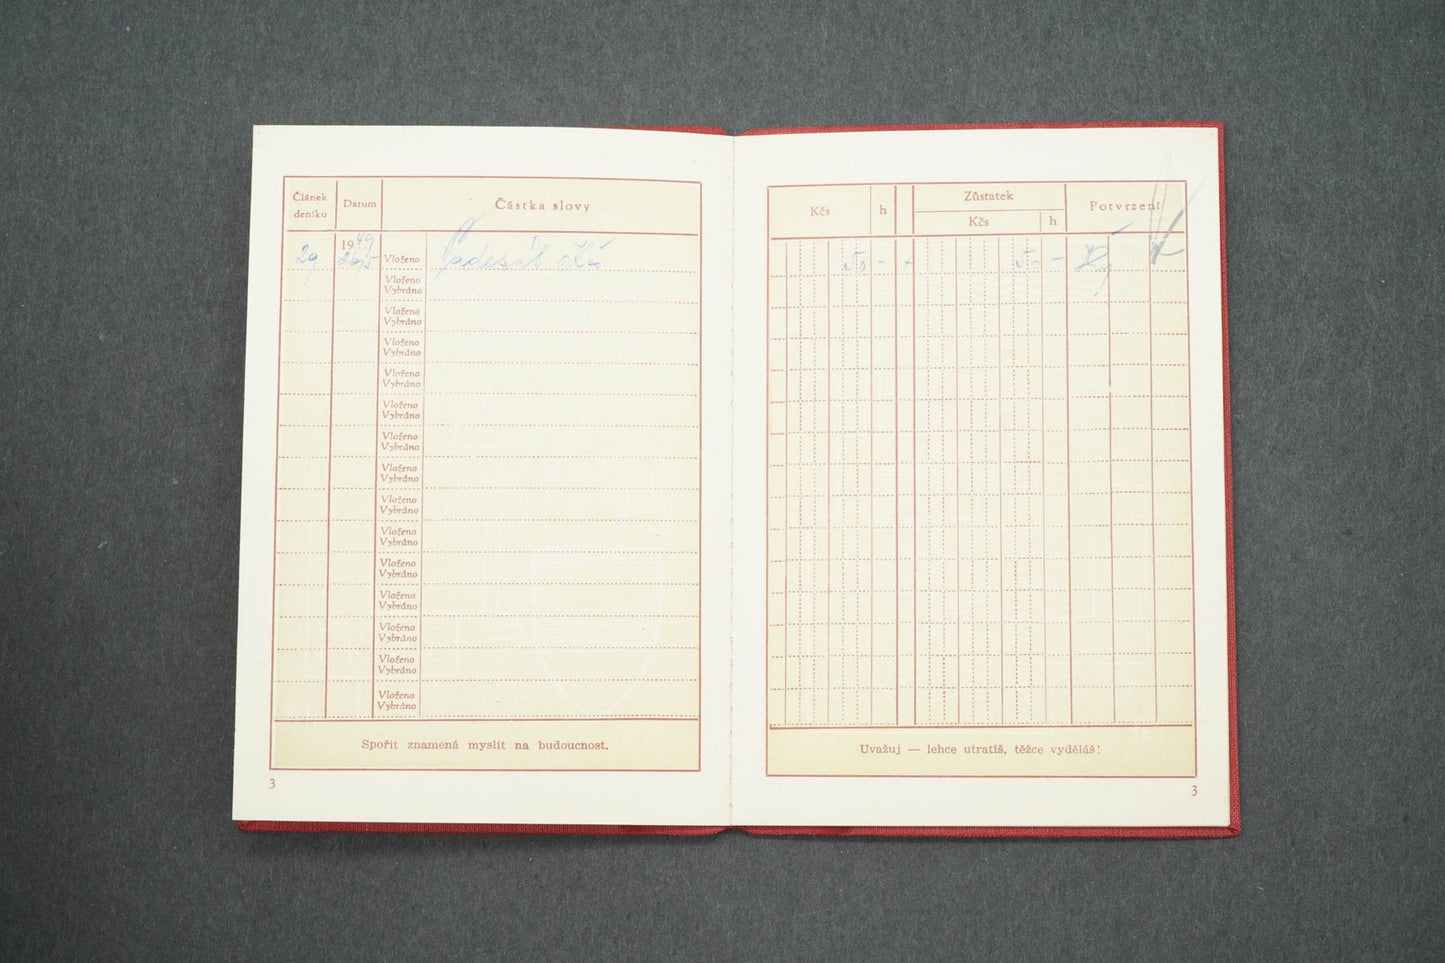 Článek deníku
Datum
Částka slovy
29
1949
26/5
Vloženo
Padesát Kčs
Vloženo
Vybráno
Vloženo
Vybráno
Vloženo
Vybráno
Vloženo
Vybráno
Vloženo
Vybráno
Vloženo
Vybráno
Vloženo
Vybráno
Vloženo
Vybráno
Vloženo
Vybráno
Vloženo
Vybráno
Vloženo
Vybráno
Vloženo
Vybráno
Vloženo
Vybráno
Vloženo
Vybráno
Spořit znamená myslit na budoucnost.
3
Kčs
h
Zůstatek
Kčs
h
Potvrzení
50 - -
50 -
Uvažuj — lehce utratíš, těžce vyděláš!
3